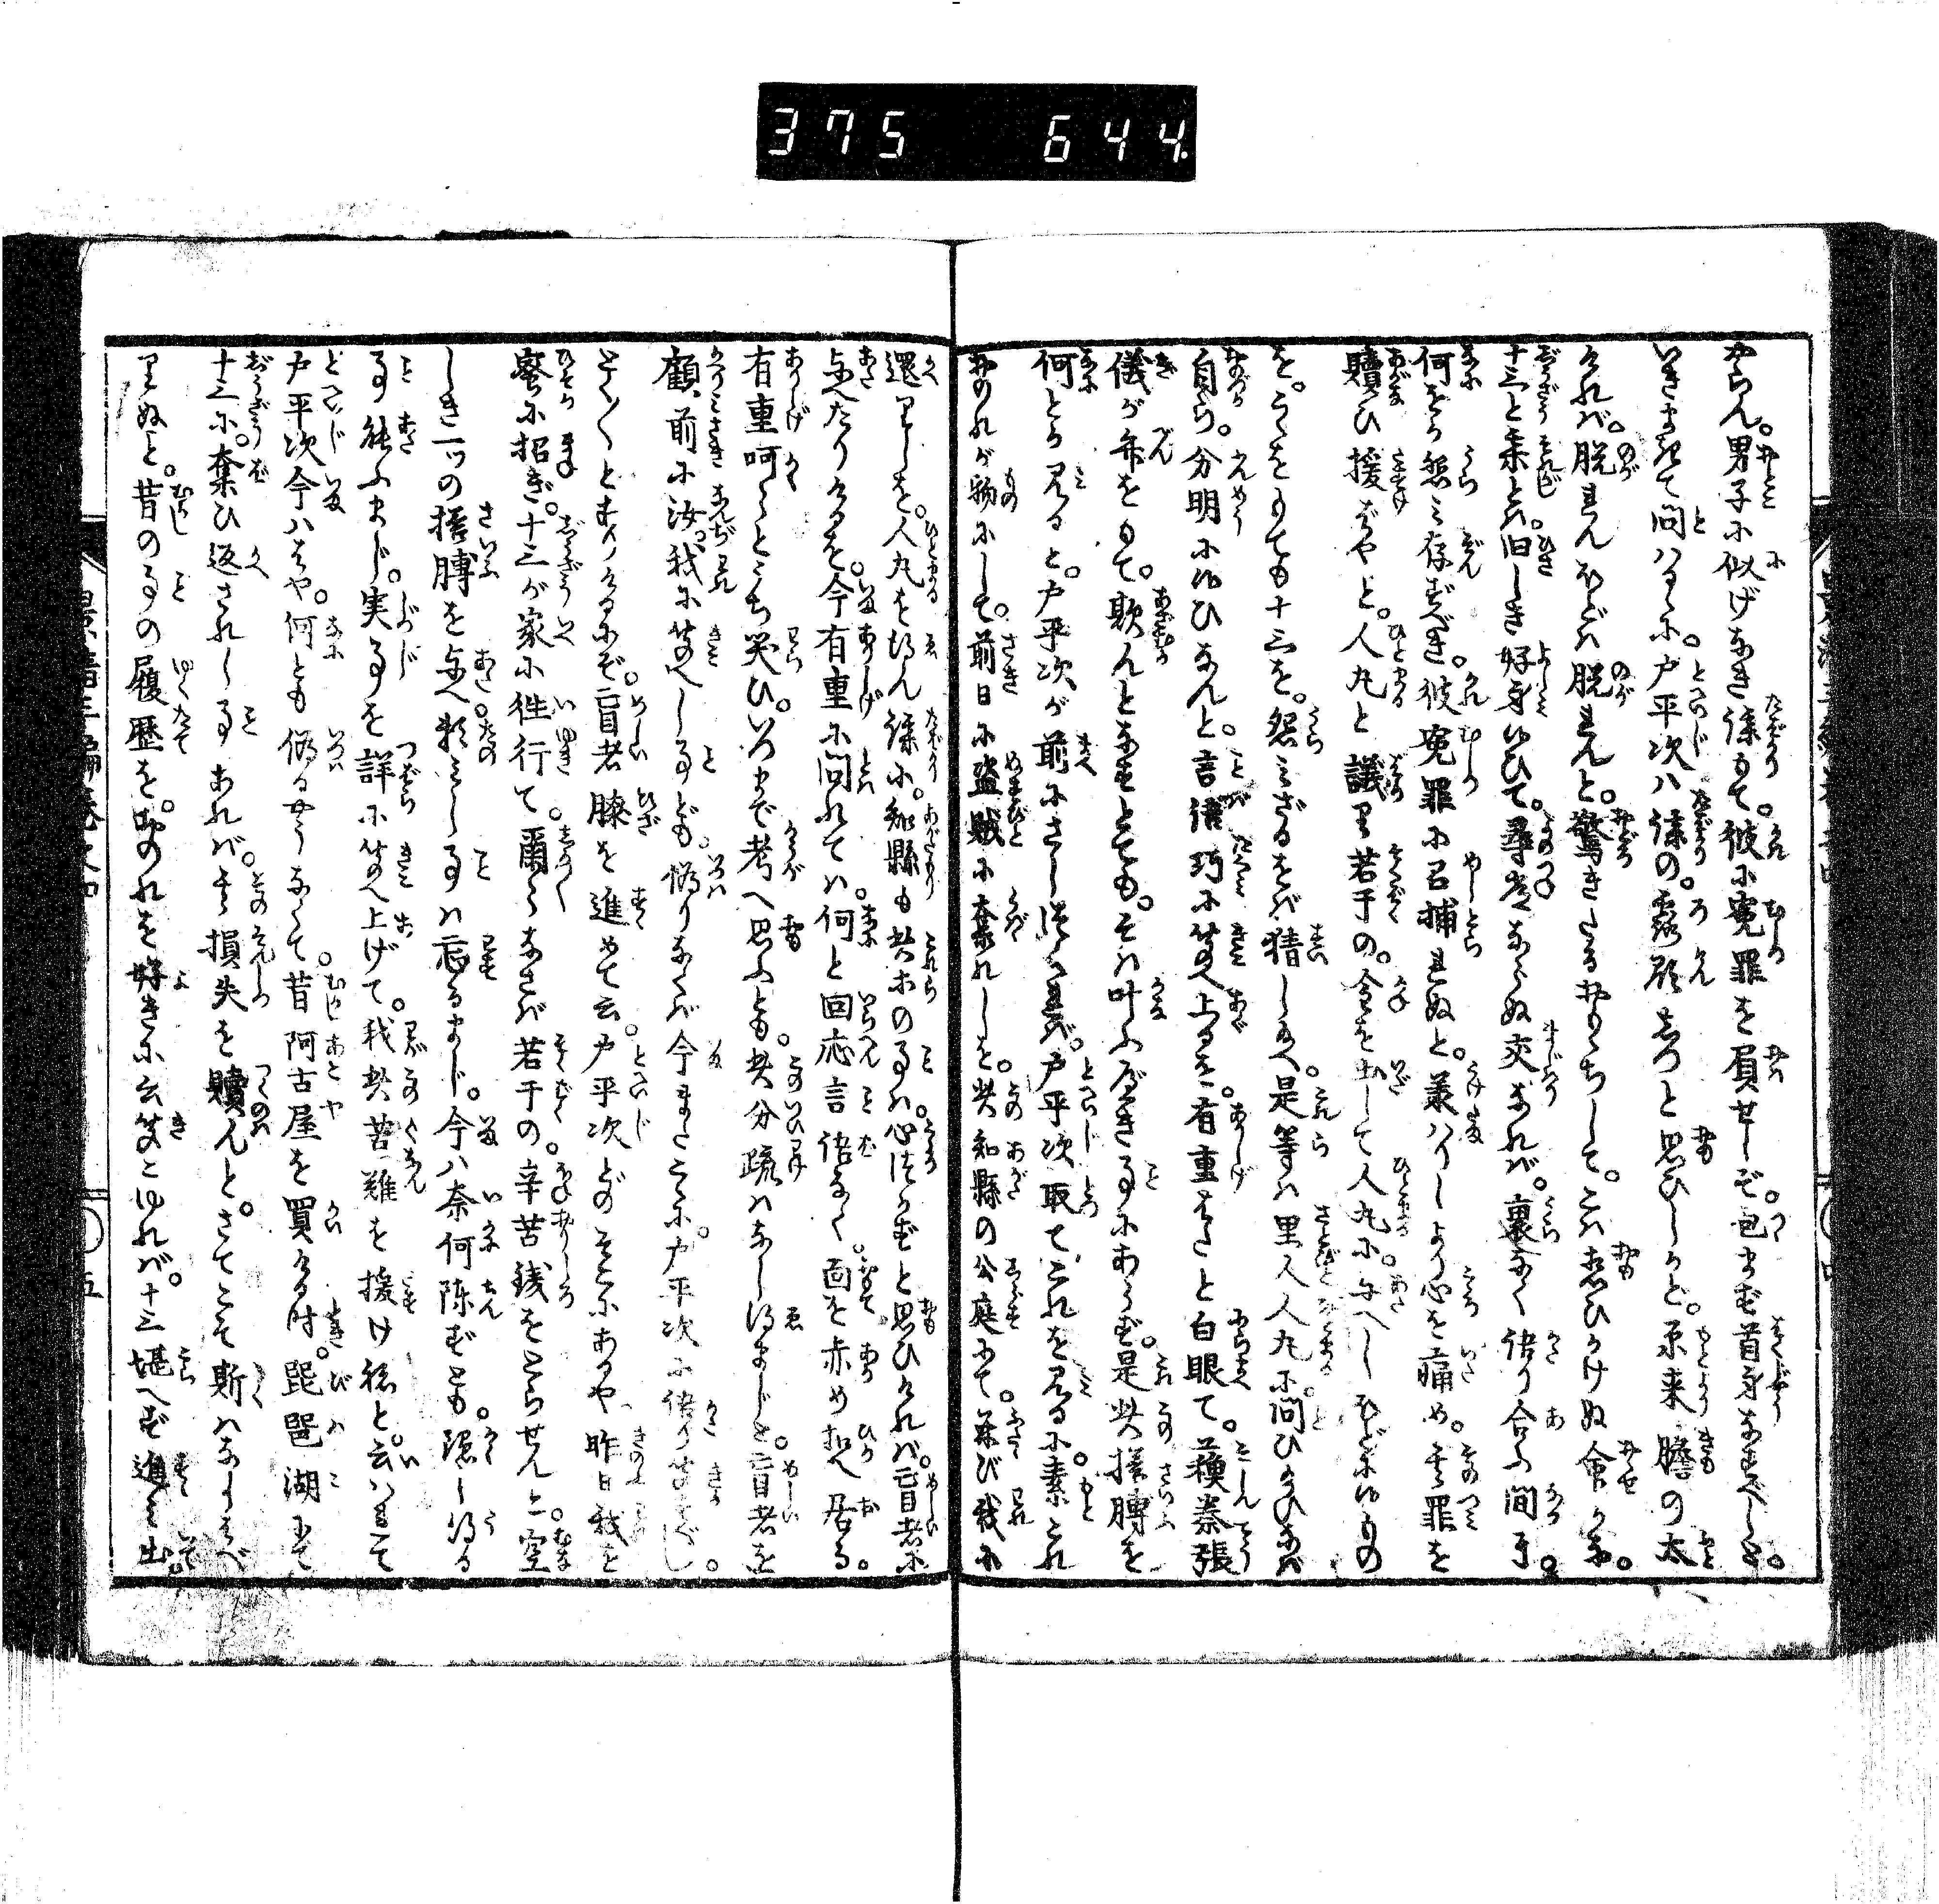 375 644
やらん。男子に似げなき謀もて。彼に寃罪を屓せしぞ。包まず首伏なすべしと。
いきまきて問はるゝに。戸平次ハ謀の。露顕しつと思ひしかど。原来膽の太
けれバ。脱れんほどハ脱れんと。驚きたるおもゝちして。こハ思ひかけぬ仰かな。
十三と某とハ。旧しき好身にて。尋常ならぬ交なれバ。裏なく語り合ふ間ぞ。
何をか怨ミ存ずべき。彼寃罪に召捕れぬと。承ハりしより心を痛め。其罪を
贖ひ援ばやと。人丸と議り若干の。金を出して人丸に。与へしほどに侍るもの
を。うらをもても十三を。怨ミざるをバ猜し給へ。是等ハ里人人丸に。問ひ給ひなバ
自ら。分明に侍ひなんと。言語巧に答へ上るを。有重はたと白眼て。蘓秦張
儀が弁をもて。欺んとなすとても。そハ叶ふべき事にあらず。是此搭膊を
何とか見ると。戸平次が前にさし出せバ。戸平次取てこれを見るに。素これ
おのれが物にして。前日に盗賊に奪れしを。此知縣の公庭にて。再び我に
還りしを。人丸を得ん謀に。知縣も此等の事ハ。心得らずと思ひけれバ。盲者に
与へたりけるを。今有重に問れてハ。何と回応言語なく。面を赤め控へ居る。
有重呵々とうち笑ひ。いつまで考へ思ふとも。此分疏ハなし得まじと。盲者を
顧。前に汝我に答へし事ども。偽りなくバ今またこゝに。戸平次に語り聞すべし。
とく〳〵とありけるにぞ。盲者膝を進めて云。戸平次どのそこにありや。昨日我を
密に招ぎ。十三が家に徃行て。爾々なさバ若干の。辛苦銭をとらせんと。空
しき一ツの搭膊を与へ。頼ミし事ハ忘るまじ。今ハ奈何陳ずとも。隠し得る
事能ふまじ。実事を詳に答へ上げて。我此苦難を援け給と。云ハれて
戸平次今ハはや。何とも偽るやうなくて。昔阿古屋を買ける時。琵琶湖にて
十三に。奪ひ返されし事あれバ。其損失を贖んと。さてこそ斯ハなしはべ
りぬと。昔の事の履歴を。おのれを好きに云答こゆれバ。十三堪へず進ミ出。